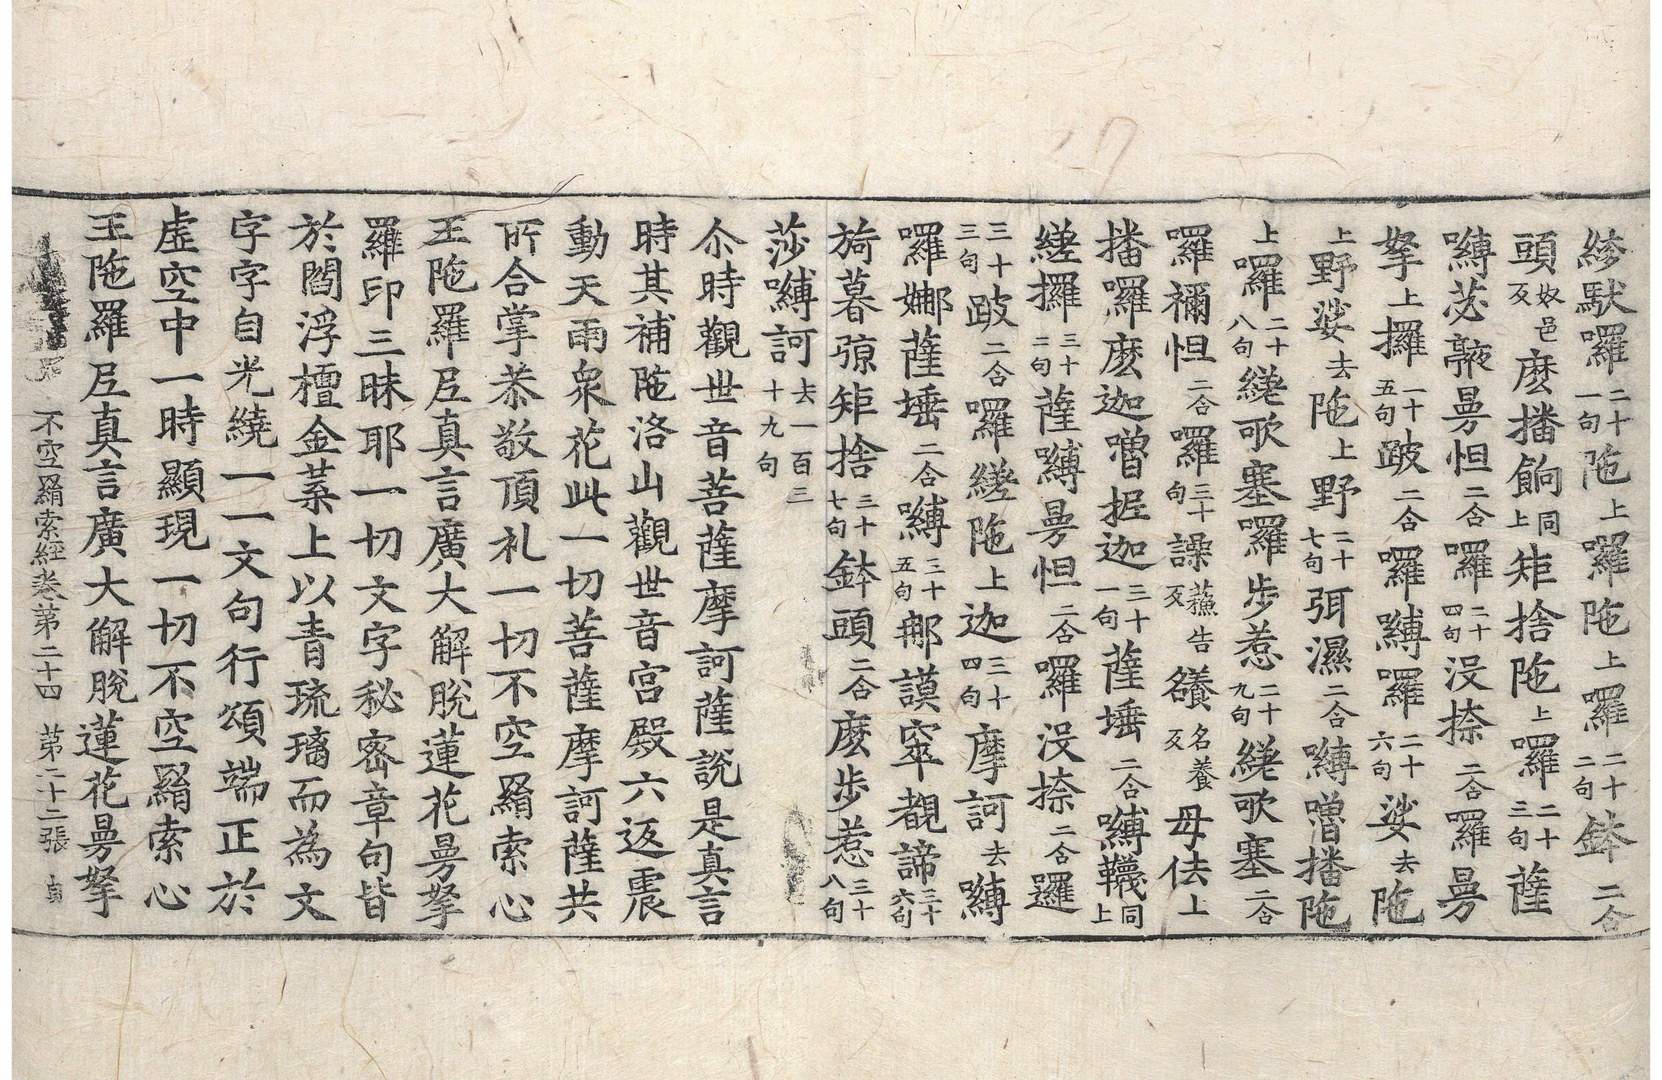 紾馱囉二十一句陁上囉陁上囉二十二句鉢二合
頭奴邑反麼播餉同上矩捨陁上囉二十三句薩
嚩苾𠿒曼怛二合囉二十四句没捺二合囉曼
拏上攞二十五句跛二合囉嚩囉二十六句娑去陁
上野娑去陁上野二十七句弭濕二合嚩噌播陁
上囉二十八句縒歌塞囉步惹二十九句縒歌塞二合
囉禰怛二合囉三十句譟蘓告反㜸名養反母佉上
播囉麽迦噌握迦三十一句薩埵二合嚩韈同上
縒攞三十二句薩嚩曼怛二合囉没捺二合邏
三十三句跛二合囉縒陁上迦三十四句摩訶去嚩
囉娜薩埵二合嚩三十五句那謨窣覩諦三十六句
旖暮𤚥矩捨三十七句鉢頭二合麽步惹三十八句
莎嚩訶去一百三十九句
尒時觀世音菩薩摩訶薩說是真言
時其補陁洛山觀世音宮殿六返震
動天雨衆花此一切菩薩摩訶薩共
所合掌恭敬頂礼一切不空羂索心
王陁羅尼真言廣大解脫蓮花曼拏
羅印三昧耶一切文字秘密章句皆
於閻浮檀金葉上以青琉璃而為文
字字自光繞一一文句行頌端正於
虛空中一時顯現一切不空羂索心
王陁羅尼真言廣大解脫蓮花曼拏
不空羂索經卷第二十四 第二十二張 貞